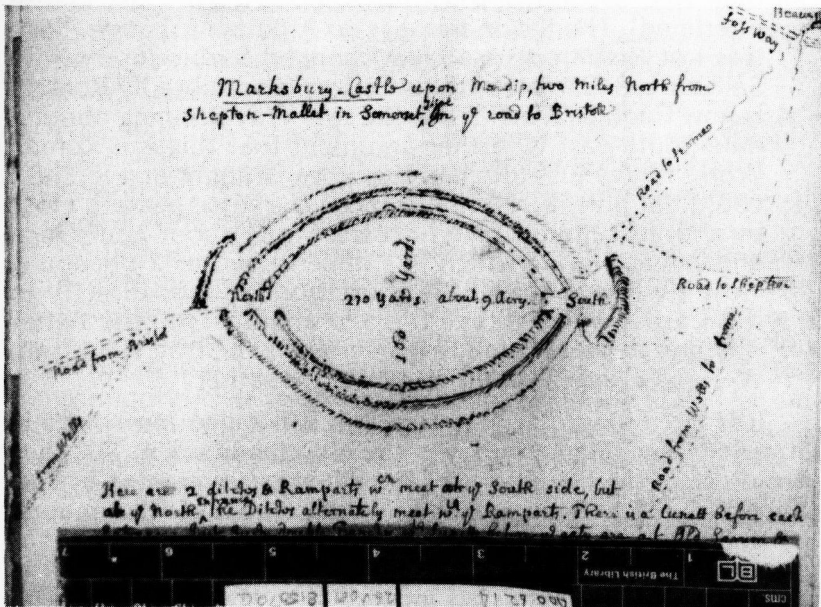 Beacon
foss way
Marksbury-Castle upon Mendip, two miles North from
Shepton-Mallet in Somerset on yᵉ road to Bristol
Road to froome
Yards
North
270 yards. about 9 Acrs.
South
160
Road to Shepton
Road from Bristol
from Wells
Road from Wells to froome
Here are 2 ditches & Ramparts wᶜʰ meet at yᵉ South side, but
at yᵉ North entrance The Ditches alternately meet wᵗʰ yᵉ Ramparts. There is a lunett before each
7 6 5 4 3 2 1
The British Library
BL
cms